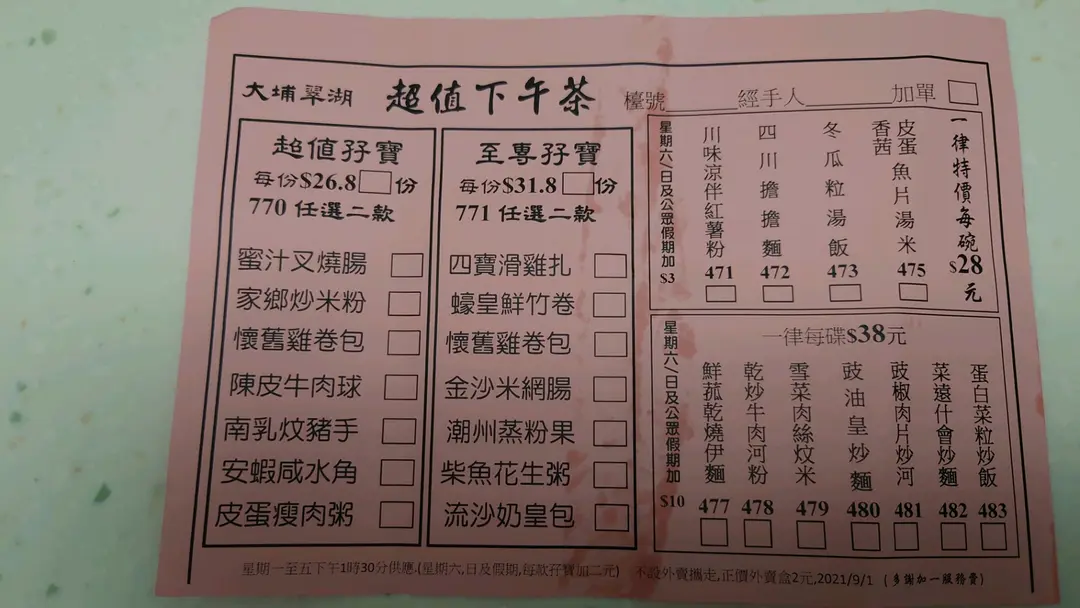 大埔翠湖 超值下午茶 檯號 經手人 加單
超值孖寶
每份$26.8 份
770 任選二款
蜜汁叉燒腸
家鄉炒米粉
懷舊雞卷包
陳皮牛肉球
南乳炆豬手
安蝦咸水角
皮蛋瘦肉粥
至尊孖寶
每份$31.8 份
771 任選二款
四寶滑雞扎
蠔皇鮮竹卷
懷舊雞卷包
金沙米網腸
潮州蒸粉果
柴魚花生粥
流沙奶皇包
一律特價每碗$28元
皮蛋魚片湯米
香茜
475
冬瓜粒湯飯
473
四川擔擔麵
472
川味涼伴紅薯粉
471
星期六/日及公眾假期加$3
一律每碟$38元
蛋白菜粒炒飯
483
菜遠什會炒麵
482
豉椒肉片炒河
481
豉油皇炒麵
480
雪菜肉絲炆米
479
乾炒牛肉河粉
478
鮮菰乾燒伊麵
477
星期六/日及公眾假期加$10
星期一至五下午1時30分供應.(星期六,日及假期,每款孖寶加二元) 不設外賣攜走,正價外賣盒2元,2021/9/1 (多謝加一服務費)